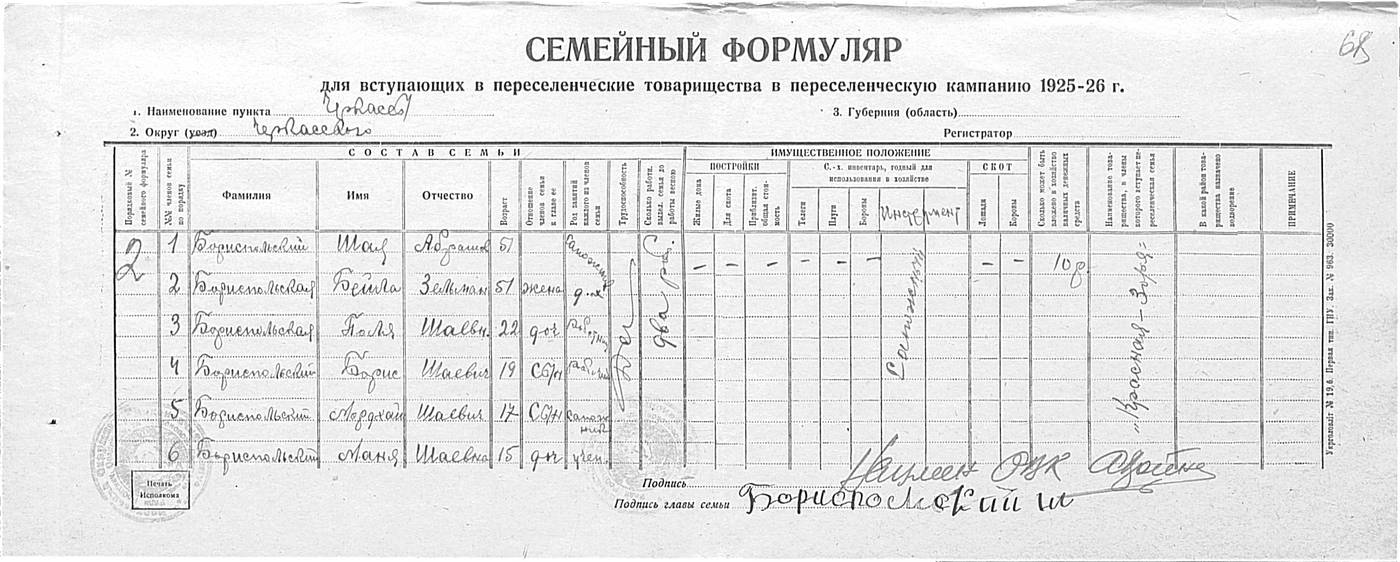 68
СЕМЕЙНЫЙ ФОРМУЛЯР
для вступающих в переселенческие товарищества в переселенческую кампанию 1925-26 г.
1. Наименование пункта Черкассы
3. Губерния (область)
2. Округ (уезд) Черкасского
Регистратор
Порядковый № семейного формуляра
№№ членов семьи по порядку
СОСТАВ СЕМЬИ
Фамилия
Имя
Отчество
Возраст
Отношение членов семьи к главе ее
Род занятий каждого из членов семьи
Трудоспособность
Сколько работн. выпел. семья до работы весною
ИМУЩЕСТВЕННОЕ ПОЛОЖЕНИЕ
ПОСТРОЙКИ
Жилые дома
Для скота
Приблизит. общая стоимость
С.-х. инвентарь, годный для использования в хозяйстве
Телеги
Плуги
Бороны
Инструмент
СКОТ
Лошади
Коровы
Сколько может быть вложено в хозяйство наличных денежных средств
Наименование товарищества, в члены которого вступает переселенческая семья
В какой район товарищества назначено водворение
ПРИМЕЧАНИЕ
2
1 Бориспольский Шая Абрамов 51 сапожник – – – – – – – – 10 р.
2 Бориспольская Бейла Зельман 51 жена д.х.
3 Бориспольская Поля Шаевн. 22 доч работниц
4 Бориспольский Борис Шаевич 19 сын рабочий
5 Бориспольский Мордхай Шаевич 17 сын сапожник
6 Бориспольский Маня Шаевна 15 доч учен.
Да
два раб.
Сапожный
„Красная-Заря"
Печать Исполкома
Подпись
Подпись главы семьи Бориспольский Ш
Укрголовліт № 19,6. Первая тип. ГПУ. Зак. № 963. 30000